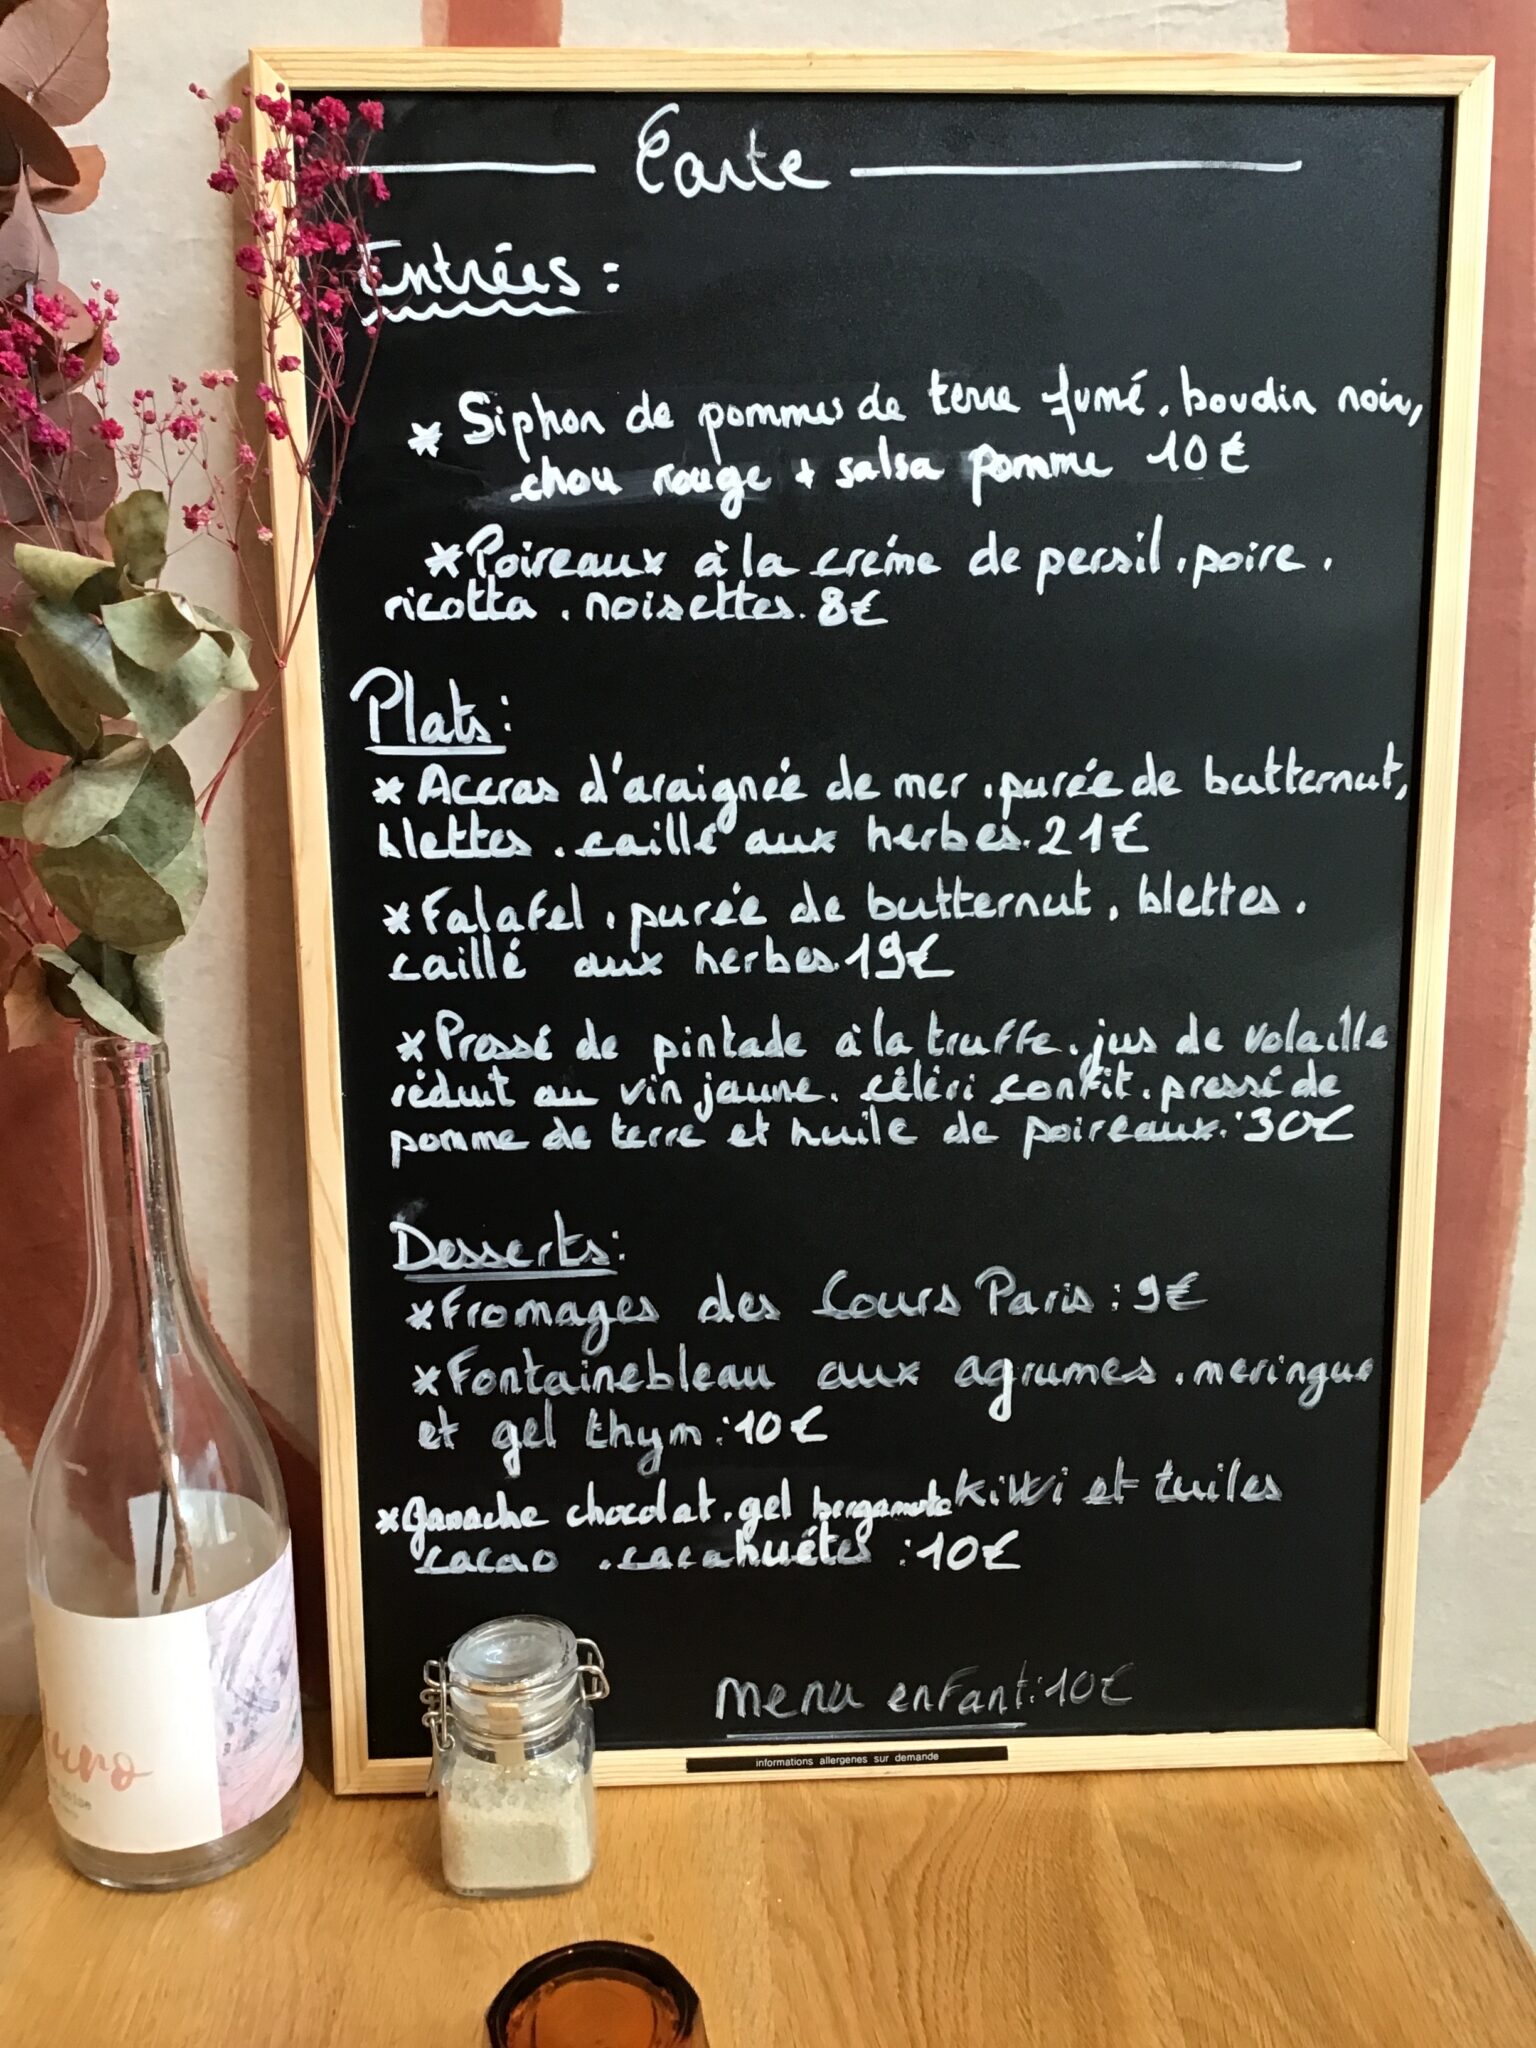 Carte
Entrées :
* Siphon de pommes de terre fumé, boudin noir,
chou rouge + salsa pomme 10€
* Poireaux à la crème de persil, poire,
ricotta, noisettes. 8€
Plats :
* Accras d'araignée de mer, purée de butternut,
blettes, caillé aux herbes. 21€
* Falafel, purée de butternut, blettes,
caillé aux herbes. 19€
* Pressé de pintade à la truffe, jus de volaille
réduit au vin jaune, céléri confit, pressé de
pomme de terre et huile de poireaux. : 30€
Desserts :
* Fromages des Cours Paris : 9€
* Fontainebleau aux agrumes, meringue
et gel thym : 10€
* Ganache chocolat, gel bergamote kiwi et tuiles
cacao, cacahuétes : 10€
menu enfant : 10€
informations allergenes sur demande